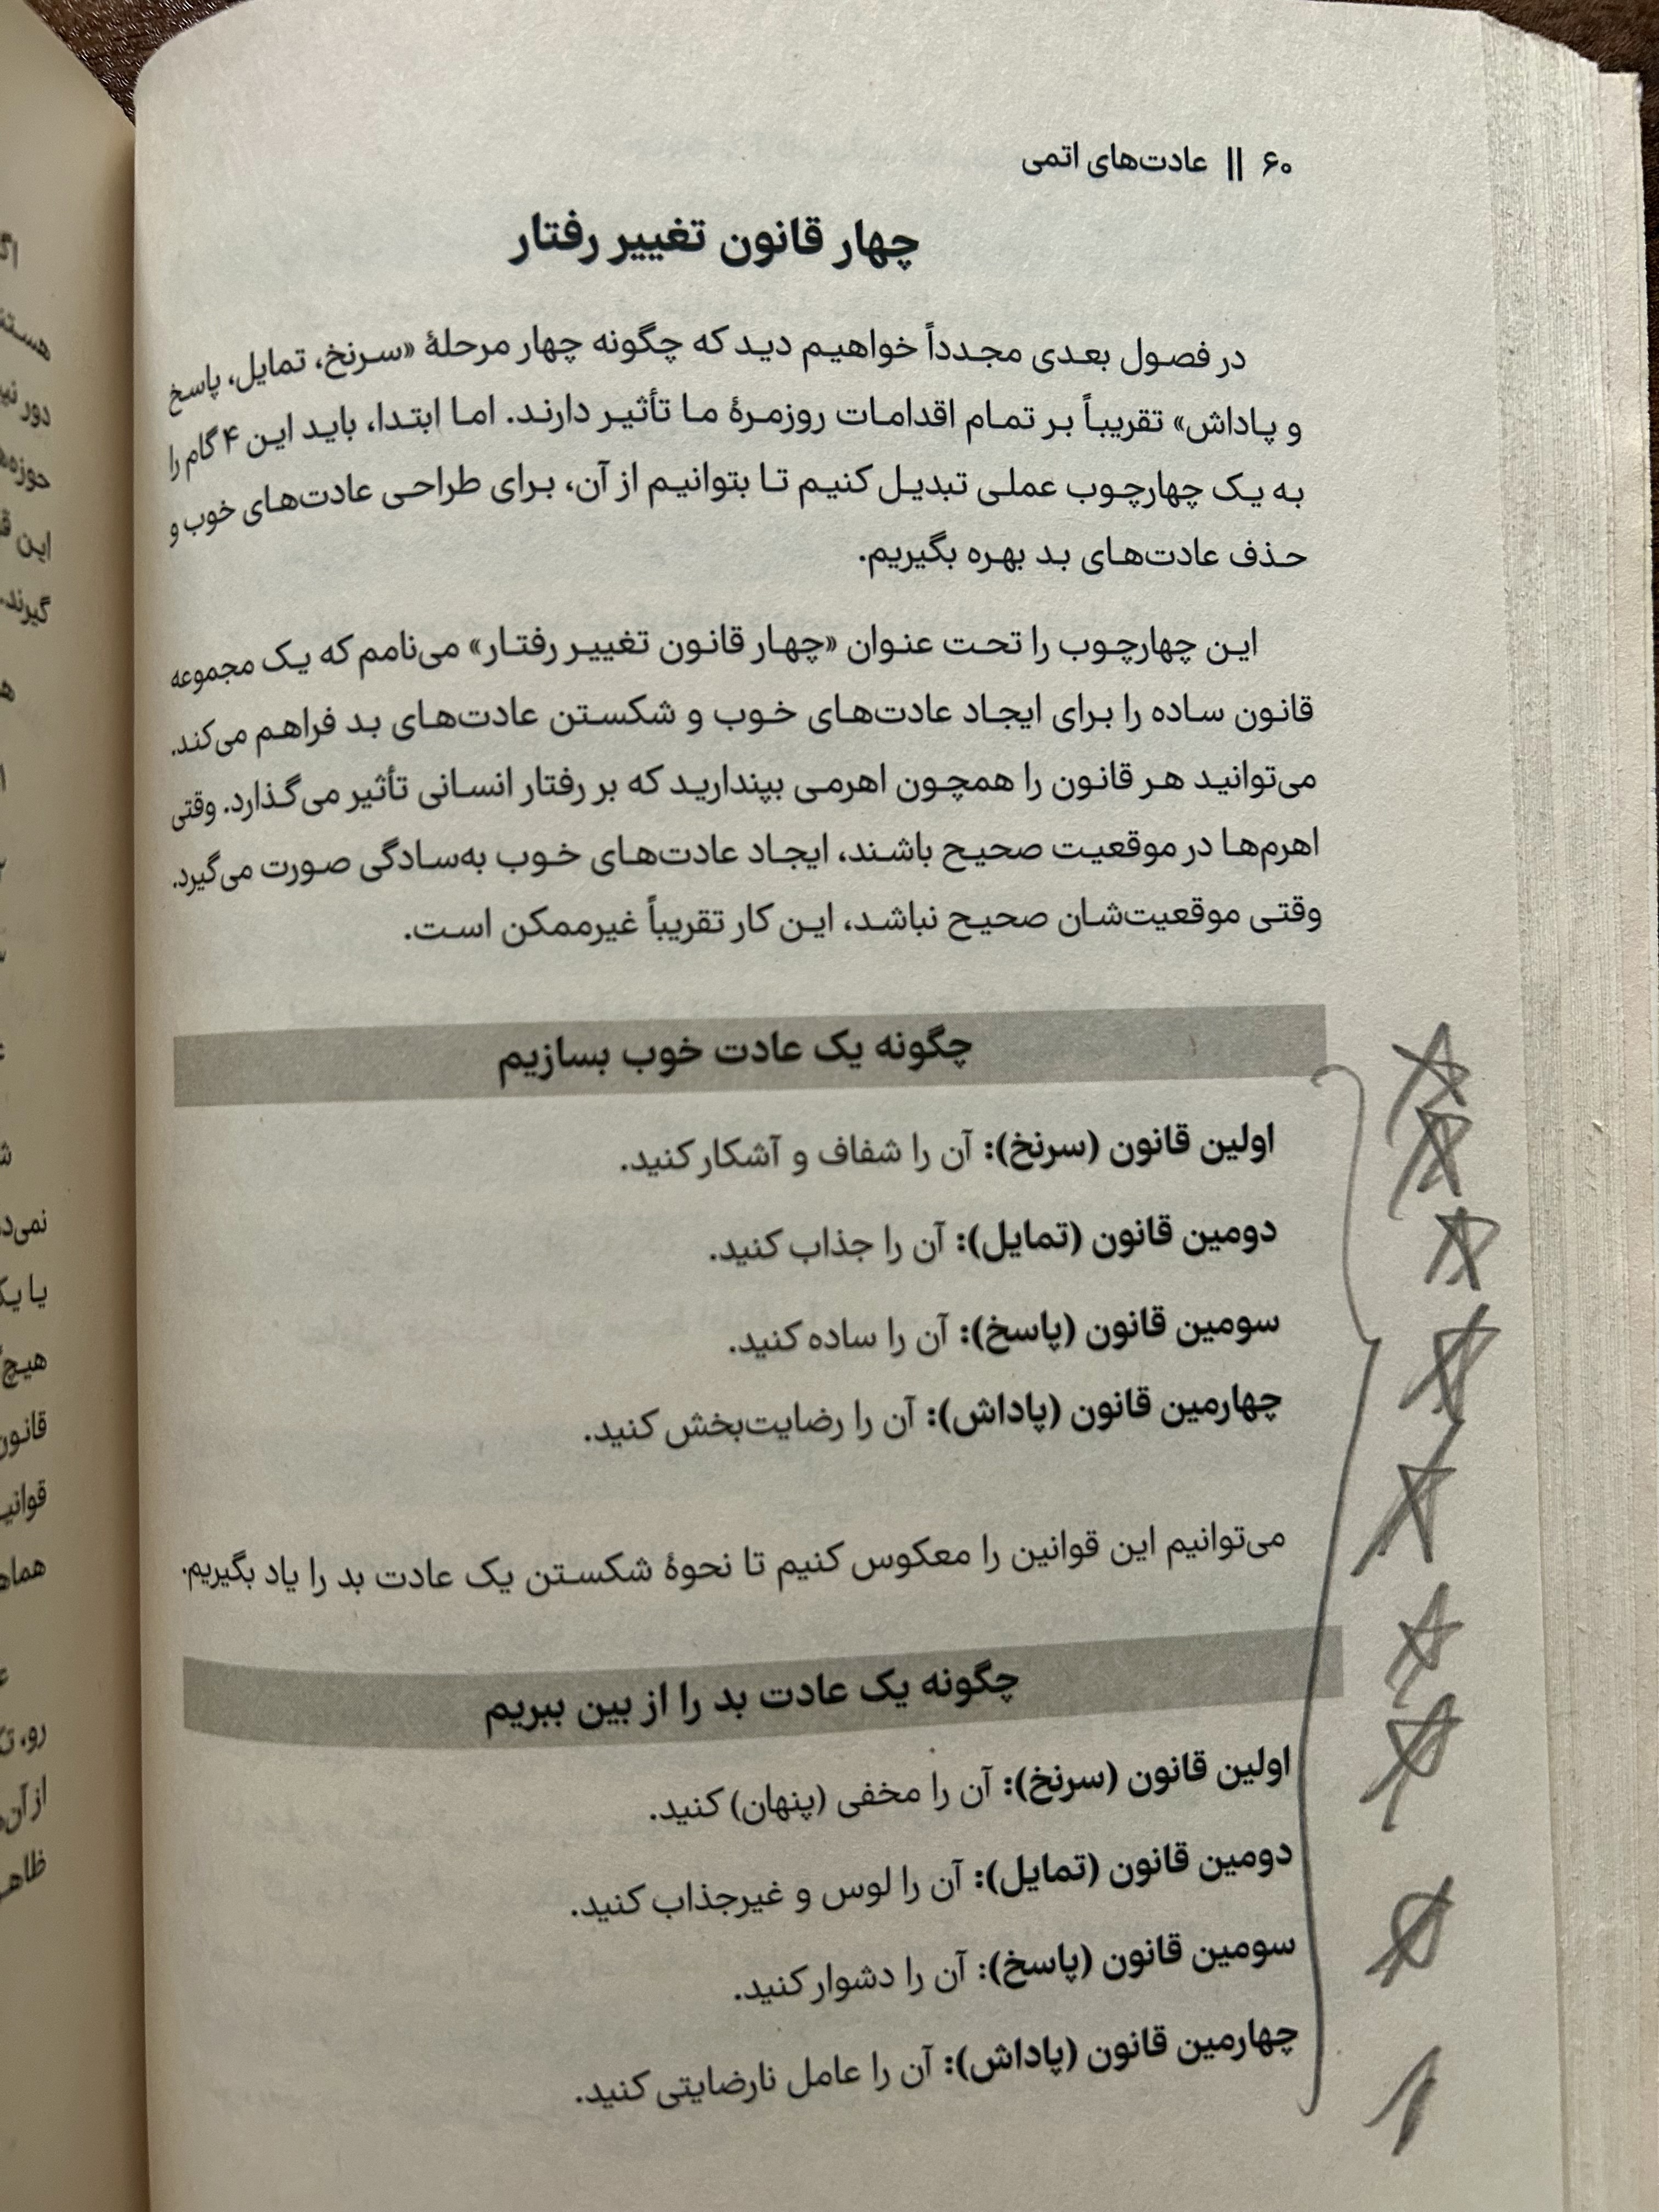 ۶۰ || عادت‌های اتمی
چهار قانون تغییر رفتار
در فصول بعدی مجدداً خواهیم دید که چگونه چهار مرحلهٔ «سرنخ، تمایل، پاسخ
و پاداش» تقریباً بر تمام اقدامات روزمرهٔ ما تأثیر دارند. اما ابتدا، باید این ۴ گام را
به یک چهارچوب عملی تبدیل کنیم تا بتوانیم از آن، برای طراحی عادت‌های خوب و
حذف عادت‌های بد بهره بگیریم.
این چهارچوب را تحت عنوان «چهار قانون تغییر رفتار» می‌نامم که یک مجموعه
قانون ساده را برای ایجاد عادت‌های خوب و شکستن عادت‌های بد فراهم می‌کند.
می‌توانید هر قانون را همچون اهرمی بپندارید که بر رفتار انسانی تأثیر می‌گذارد. وقتی
اهرم‌ها در موقعیت صحیح باشند، ایجاد عادت‌های خوب به‌سادگی صورت می‌گیرد.
وقتی موقعیت‌شان صحیح نباشد، این کار تقریباً غیرممکن است.
چگونه یک عادت خوب بسازیم
اولین قانون (سرنخ): آن را شفاف و آشکار کنید.
دومین قانون (تمایل): آن را جذاب کنید.
سومین قانون (پاسخ): آن را ساده کنید.
چهارمین قانون (پاداش): آن را رضایت‌بخش کنید.
می‌توانیم این قوانین را معکوس کنیم تا نحوهٔ شکستن یک عادت بد را یاد بگیریم.
چگونه یک عادت بد را از بین ببریم
اولین قانون (سرنخ): آن را مخفی (پنهان) کنید.
دومین قانون (تمایل): آن را لوس و غیرجذاب کنید.
سومین قانون (پاسخ): آن را دشوار کنید.
چهارمین قانون (پاداش): آن را عامل نارضایتی کنید.